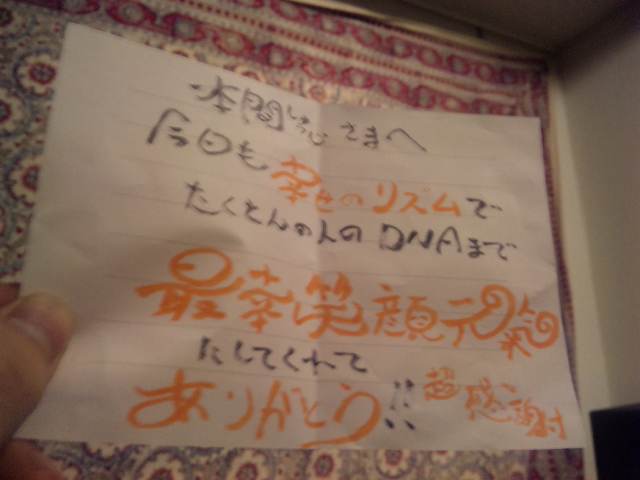 本間 さまへ
今日も幸せのリズムで
たくさんの人のDNAまで
最幸笑顔元氣
にしてくれて
ありがとう!! 超感謝